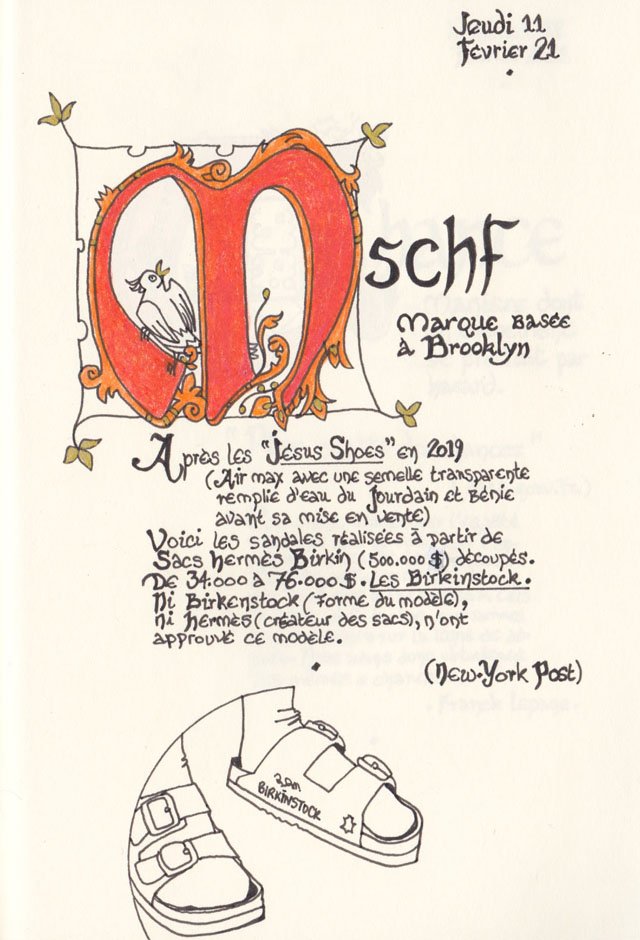 Jeudi 11
Février 21
Mschf
Marque basée
à Brooklyn
Après les "Jésus Shoes" en 2019
(Air max avec une semelle transparente
remplie d'eau du Jourdain et bénie
avant sa mise en vente)
Voici les sandales réalisées à partir de
Sacs hermès Birkin (500.000 $) découpés.
De 34.000 à 76.000 $. Les Birkinstock.
Ni Birkenstock (forme du modèle),
ni hermès (créateur des sacs), n'ont
approuvé ce modèle.
(New-York Post)
BIRKINSTOCK